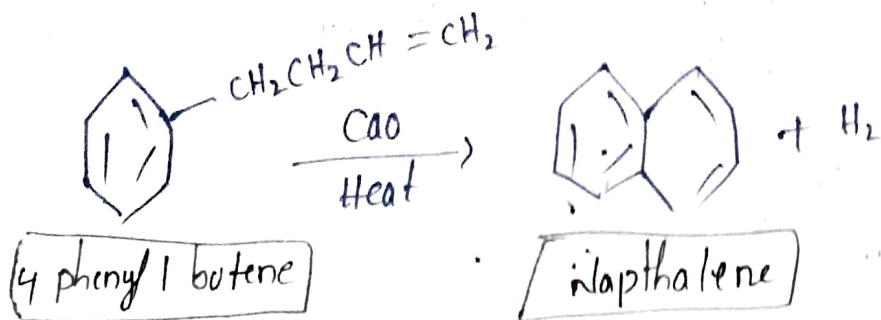 CH₂CH₂CH=CH₂
Cao
Heat
+ H₂
4 phenyl 1 butene
Napthalene